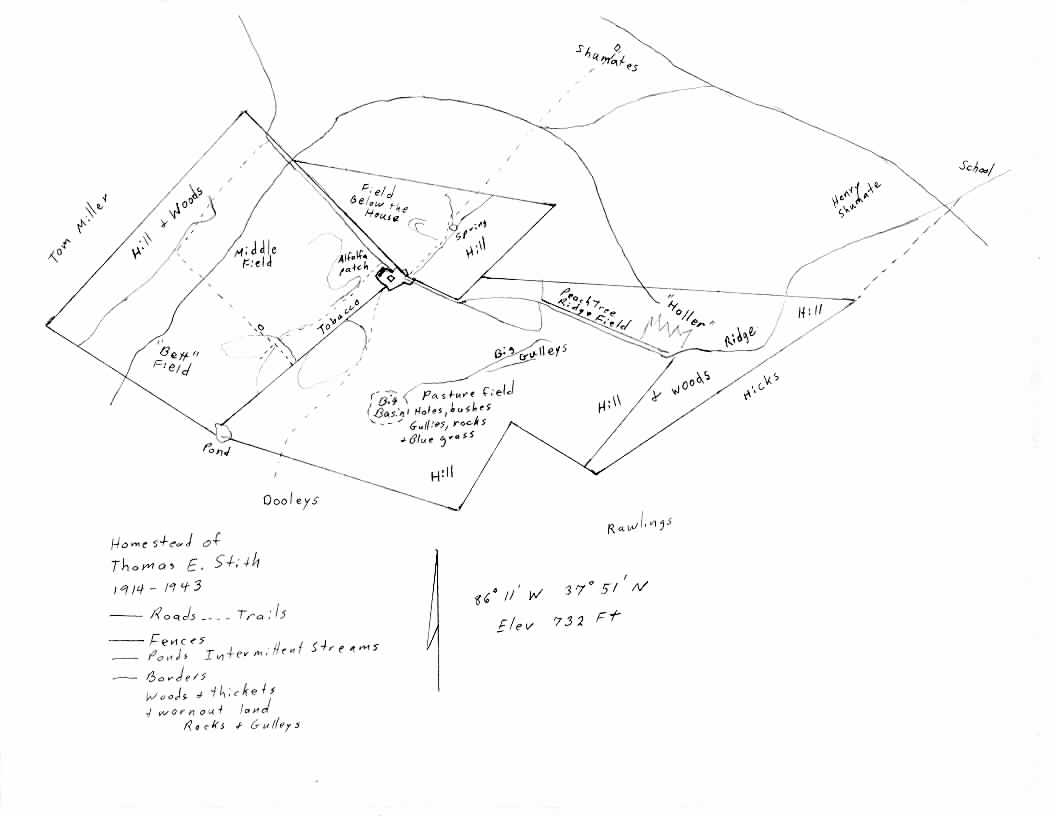 D.
Shumates
School
Henry
Shumate
Tom Miller
Hill + Woods
Field
Below the
House
Spring
Hill
Middle
Field
Alfalfa
patch
Tobacco
Peach Tree
Ridge Field
"Holler"
Hill
Ridge
"Bett"
Field
Big Gulleys
Big
Basin
Pasture field
Holes, bushes
Gullies, rocks
+ Blue grass
Hill + woods
Hicks
Pond
Hill
Dooleys
Rawlings
Homestead of
Thomas E. Stith
1914 - 1943
Roads .... Trails
Fences
Ponds Intermittent Streams
Borders
Woods + thickets
+ wornout land
Rocks + Gulleys
86° 11' W 37° 51' N
Elev 732 Ft